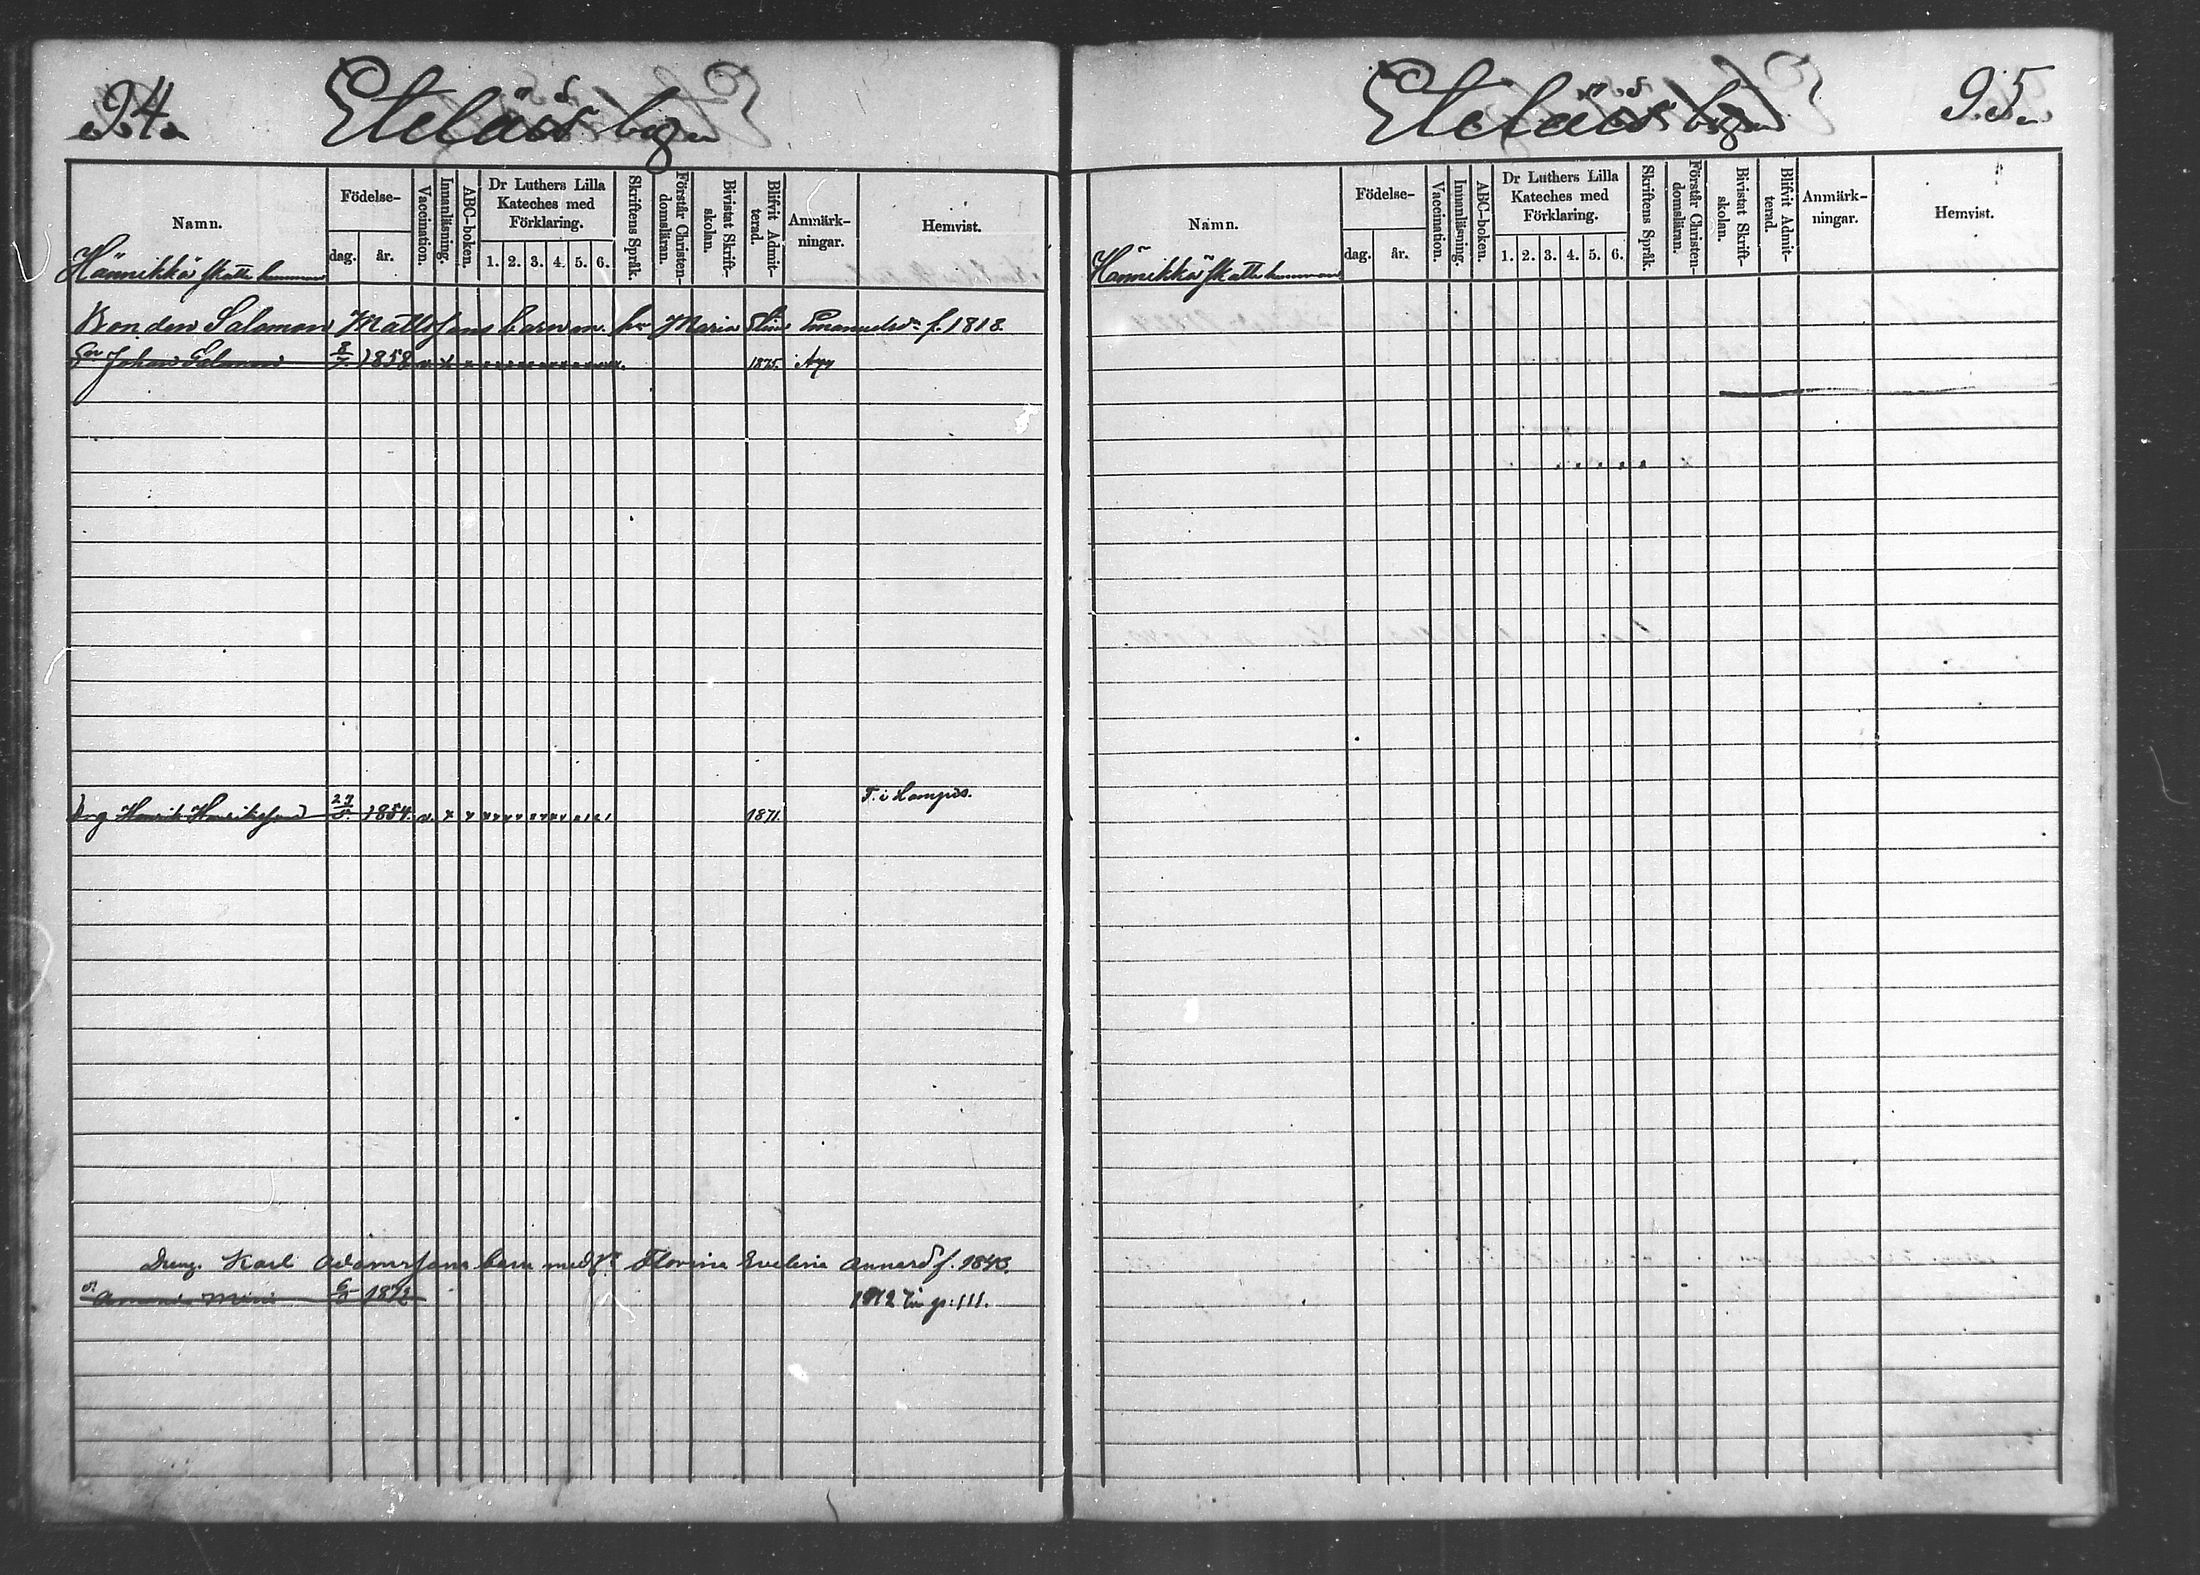 94. Eteläis by
Namn. Födelse- dag. år. Vaccination. Innanläsning. ABC-boken. Dr Luthers Lilla Kateches med Förklaring. 1. 2. 3. 4. 5. 6. Skriftens Språk. Förstår Christendomsläran. Bivistat Skriftskolan. Blifvit Admitterad. Anmärkningar. Hemvist.
Hännikkä skattehemman
Bonden Salomon Mattssons barn m. hu Maria Stina Emanuelsdr f. 1818.
Son Johan Salomon 8/7 1858 1875.
Drg Henrik Henriksson 27/8 1854. 1871. T. i Hampis.
Dreng. Karl Adamssons barn med h. Florina Evelina Annasd f. 1843.
Amanda Mina 6/8 1872 1872 p: 111.
95.
Eteläis by
Namn. Födelse- dag. år. Vaccination. Innanläsning. ABC-boken. Dr Luthers Lilla Kateches med Förklaring. 1. 2. 3. 4. 5. 6. Skriftens Språk. Förstår Christendomsläran. Bivistat Skriftskolan. Blifvit Admitterad. Anmärkningar. Hemvist.
Hännikkä skattehemman